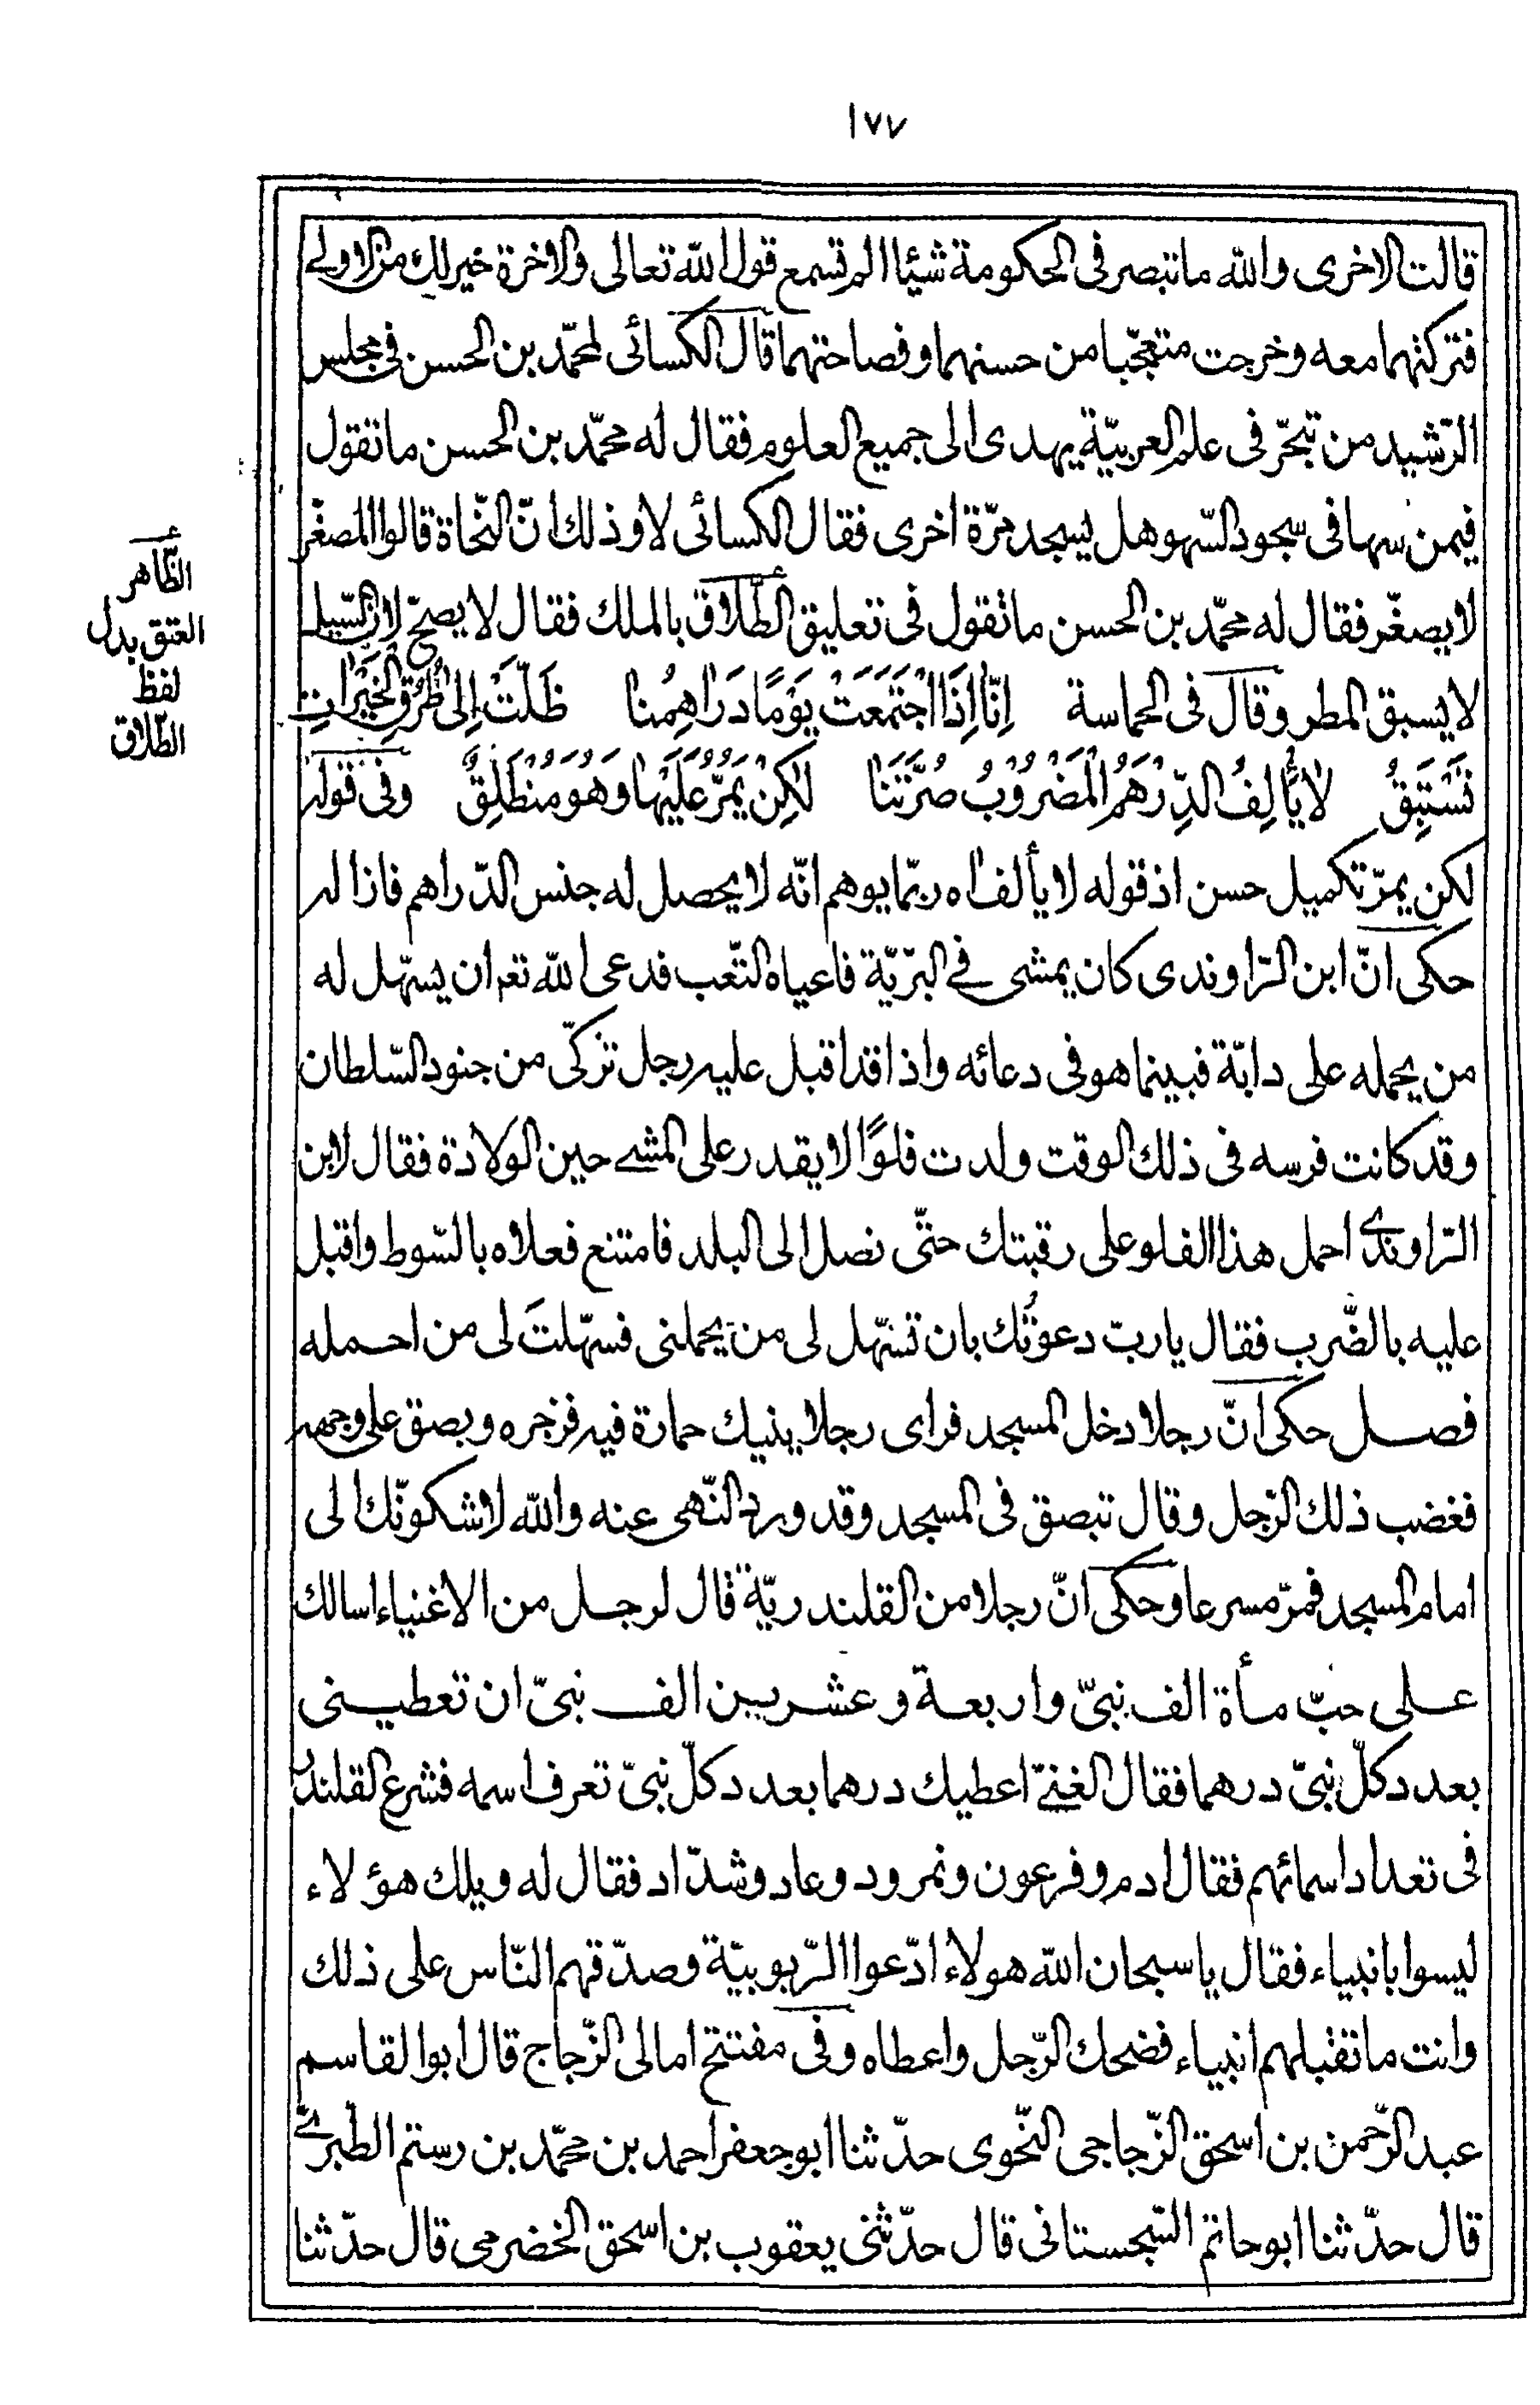 ١٧٧
قالت الاخرى والله ما تبصر فى الحكومة شيئا الم تسمع قول الله تعالى والاخرة خير لك من الاولى
فتركتهما معه وخرجت متعجّبا من حسنهما وفصاحتهما قال الكسائى لمحمّد بن الحسن فى مجلس
الرّشيد من تبحّر فى علم العربيّة يهدى الى جميع العلوم فقال له محمّد بن الحسن ما تقول
فيمن سها فى سجود السّهو هل يسجد مرّة اخرى فقال الكسائى لا وذلك انّ النّحاة قالوا المصغّر
لا يصغّر فقال له محمّد بن الحسن ما تقول فى تعليق الطّلاق بالملك فقال لا يصحّ لان السّيل
لا يسبق المطر وقال فى الحماسة اِنّا اِذَا اجْتَمَعَتْ يَوْمًا دَرَاهِمُنا ظَلَّتْ اِلى طُرُقِ الخَيْرَاتِ
نَسْتَبِقُ لا يَأْلِفُ الدِّرْهَمُ الْمَضْرُوْبُ صُرَّتَنَا لٰكِنْ يَمُرُّ عَلَيْهَا وَهُوَ مُنْطَلِقٌ وفى قوله
لكن يمرّ تكميل حسن اذ قوله لا يألف اه ربّما يوهم انّه لا يحصل له جنس الدّراهم فازاله
حكى انّ ابن الرّاوندى كان يمشى فى البرّيّة فاعياه التّعب فدعى الله تعم ان يسهّل له
من يحمله على دابّة فبينما هو فى دعائه واذا قد اقبل عليه رجل تركّى من جنود السّلطان
وقد كانت فرسه فى ذلك الوقت ولدت فلوًا لا يقدر على المشى حين الولادة فقال لابن
الرّاوندى احمل هذا الفلو على رقبتك حتّى نصل الى البلد فامتنع فعلاه بالسّوط واقبل
عليه بالضّرب فقال يا ربّ دعوتُك بان تسّهل لى من يحملنى فسهّلتَ لى من احمله
فصل حكى انّ رجلا دخل المسجد فراى رجلا ينيك حمارة فيه فزجره وبصق على وجهه
فغضب ذلك الرّجل وقال تبصق فى المسجد وقد ورد النّهى عنه والله لاشكونّك الى
امام المسجد فمرّ مسرعا وحكى انّ رجلا من القلندريّة قال لرجل من الاغنياء اسالك
على حبّ مأة الف نبىّ واربعة وعشرين الف نبىّ ان تعطينى
بعدد كلّ نبىّ درهما فقال الغنىّ اعطيك درهما بعدد كلّ نبىّ تعرف اسمه فشرع القلندر
فى تعداد اسمائهم فقال ادم وفرعون ونمرود وعاد وشدّاد فقال له ويلك هؤلاء
ليسوا بانبياء فقال يا سبحان الله هولاء ادّعوا الرّبوبيّة وصدّقهم النّاس على ذلك
وانت ما تقبلهم انبياء فضحك الرّجل واعطاه وفى مفتتح امالى الزّجاج قال ابو القاسم
عبد الرّحمن بن اسحق الزّجاجى النّحوى حدّثنا ابو جعفر احمد بن محمّد بن رستم الطّبرىّ
قال حدّثنا ابو حاتم السّجستانى قال حدّثنى يعقوب بن اسحق الخضرمى قال حدّثنا
الظّاهر
العتق بدل
لفظ
الطّلاق